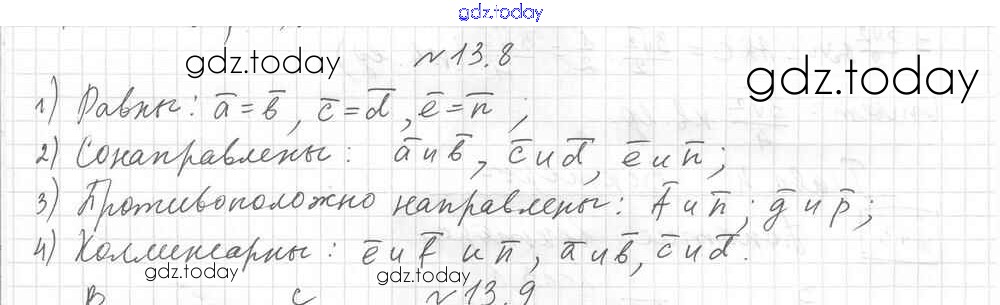 gdz.today
№13.8
gdz.today
gdz.today
1) Равны: a̅ = b̅, c̅ = d̅, e̅ = n̅;
2) Сонаправлены: a̅ и b̅, c̅ и d̅, e̅ и n̅;
3) Противоположно направлены: f̅ и n̅; g̅ и p̅;
4) Коллинеарны: e̅ и f̅ и n̅, a̅ и b̅, c̅ и d̅.
gdz.today
gdz.today
B c №13.9